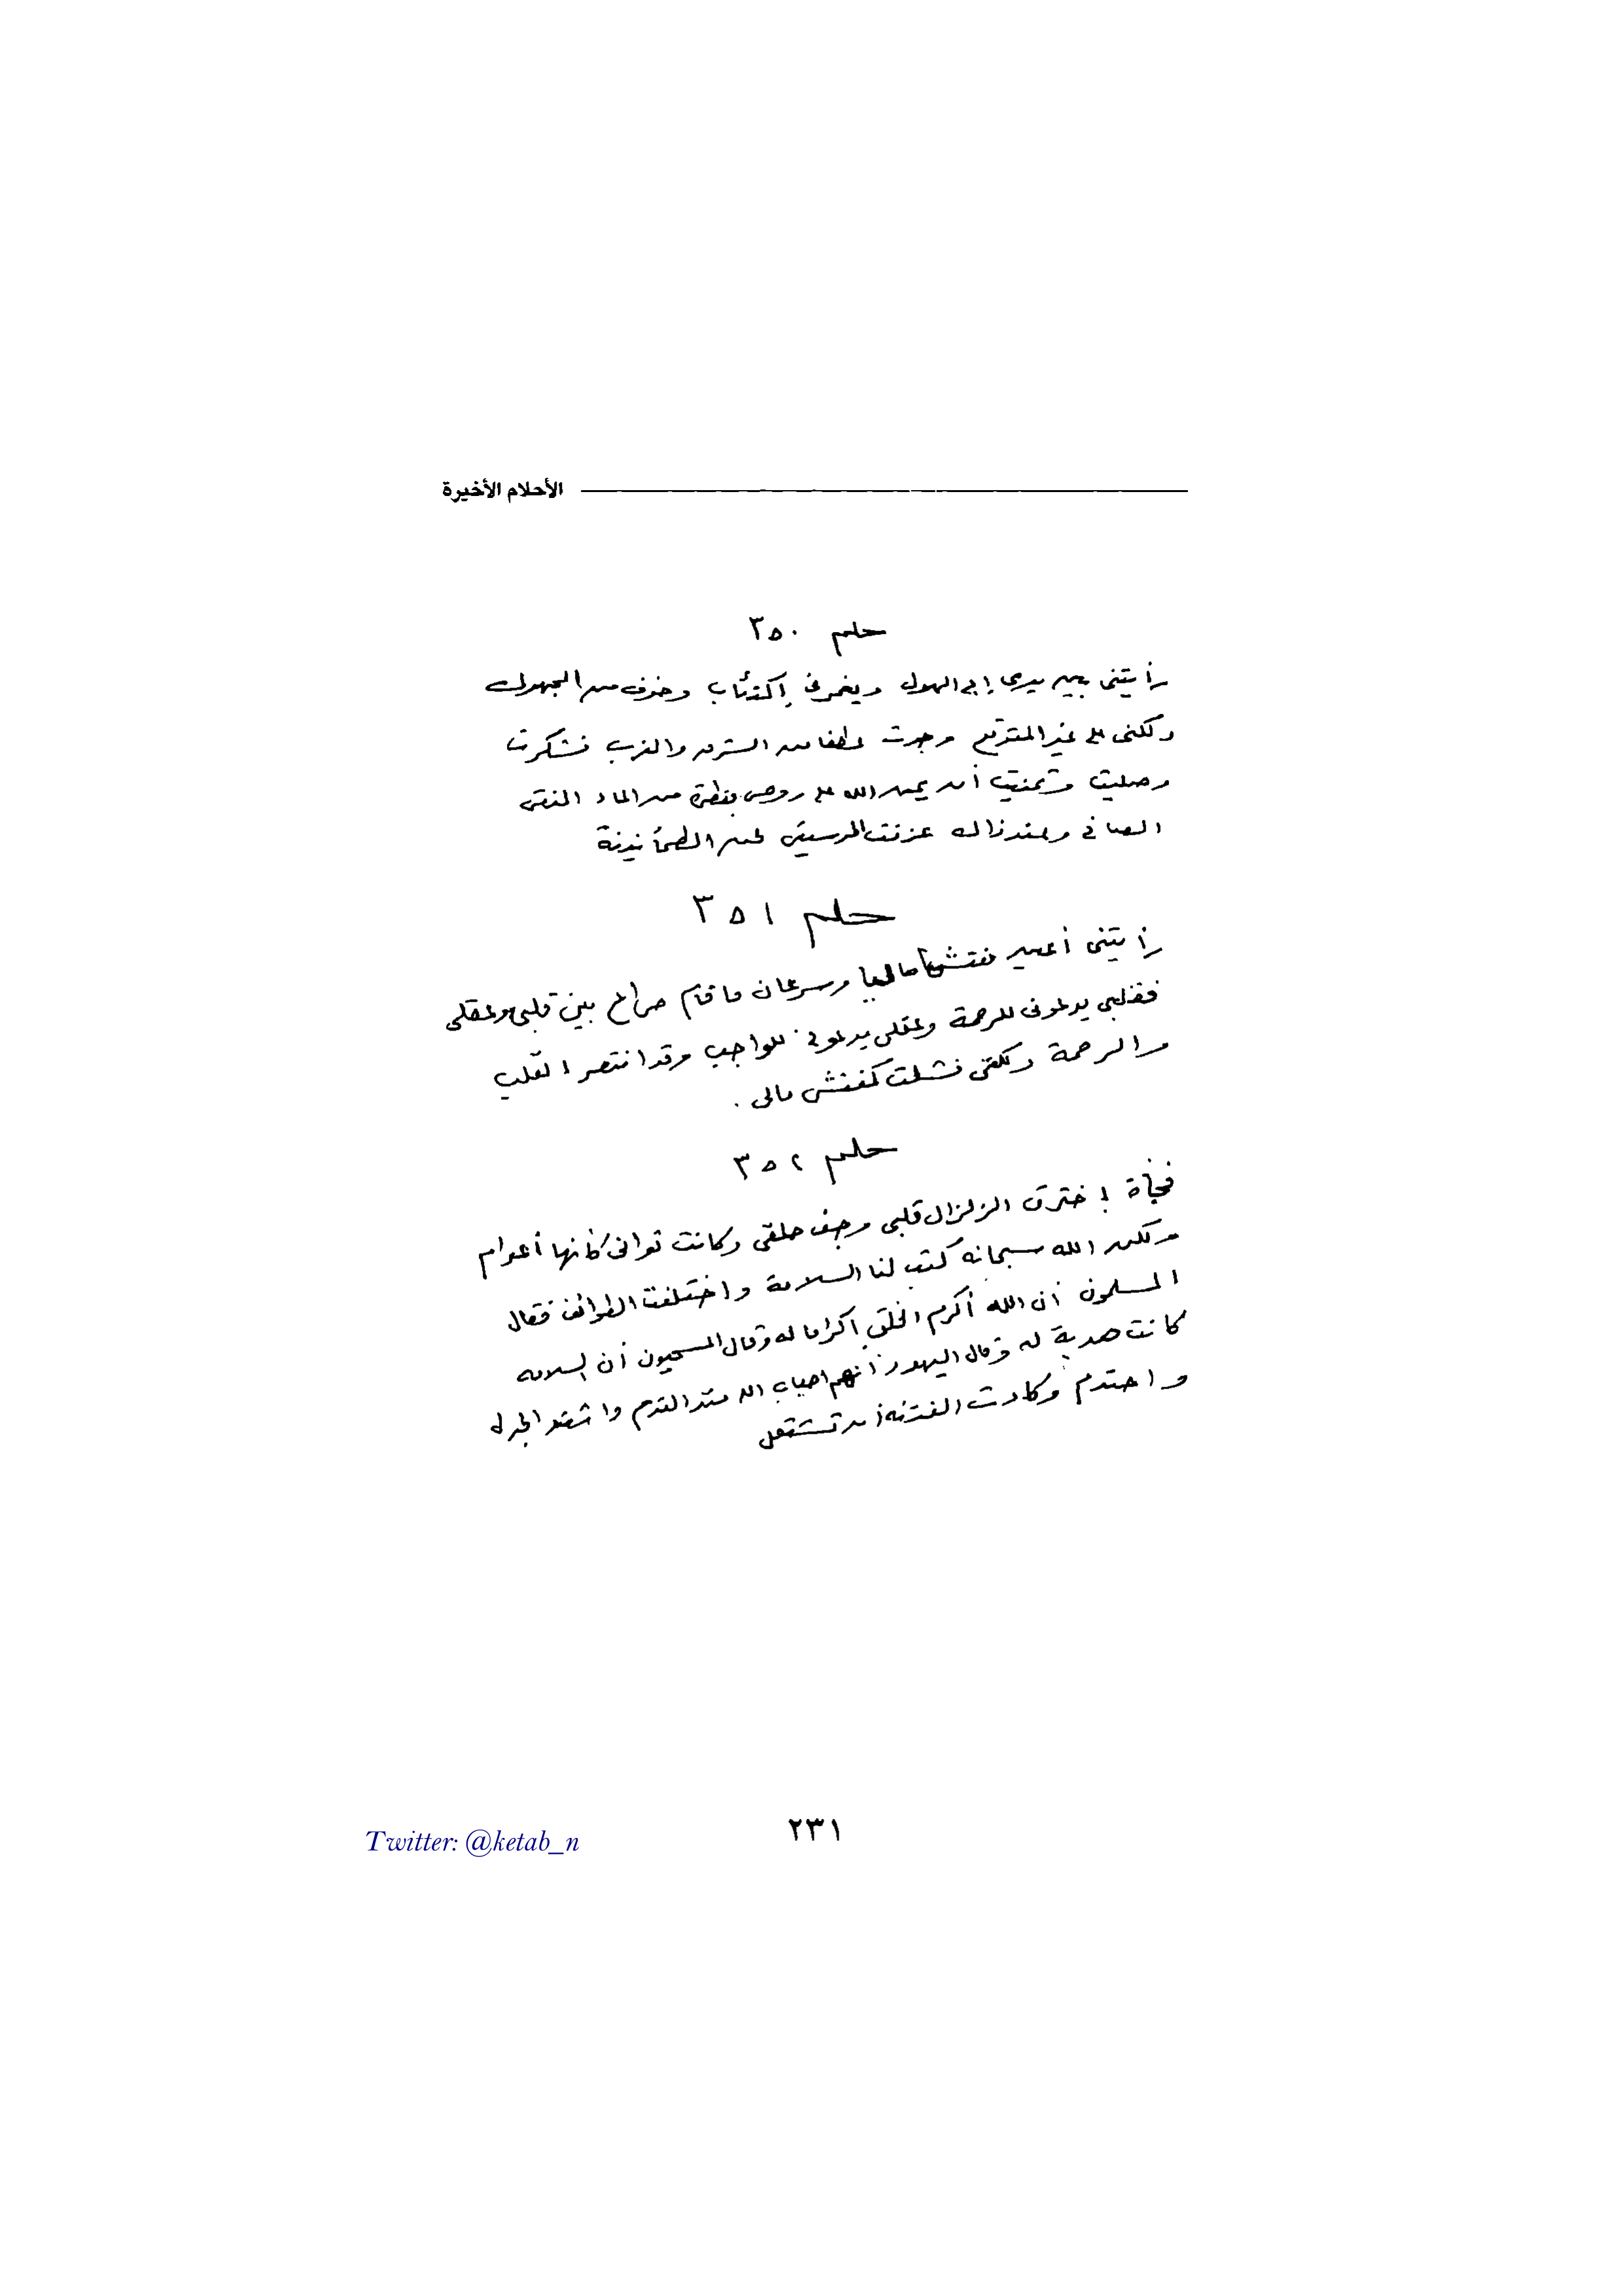 الأحلام الأخيرة
حلم ٣٥٠
رأيتنى بين يدى أبى الهول ويغمرنى إكتئاب وخوف من المجهول
ولكنى على غير المتوقع وجدت لطفا من الشرق والغرب فشكرت
وصليت وتمنيت أن يمن الله على روحى بقطرة من الماء النقى
الصافى وعند ذاك عزفت الموسيقى لحن الطمأنينة
حلم ٣٥١
رأيتنى أعمل مفتشا ماليا وسرعان ما قام صراع بين قلبى وعقلى
فقلبى يدعونى للرحمة وعقلى يدعونى للواجب وقد انتصر القلب
والرحمة ولكنى فشلت كمفتش مالى .
حلم ٣٥٢
فجأة إخترق الزلزال قلبى وجف حلقى وكانت ثوانى كأنها أعوام
ولكن الله سبحانه كتب لنا السلامة واختلفت الطوائف فقال
المسلمون أن الله أكرم الخلق اكراما له وقال المسحيون أن السلامه
كانت هدية له وقال اليهود أنهم احباب الله منذ القدم واشتد الجدل
واحتدم وكادت الفتنه أن تشتعل
٢٣١
Twitter: @ketab_n